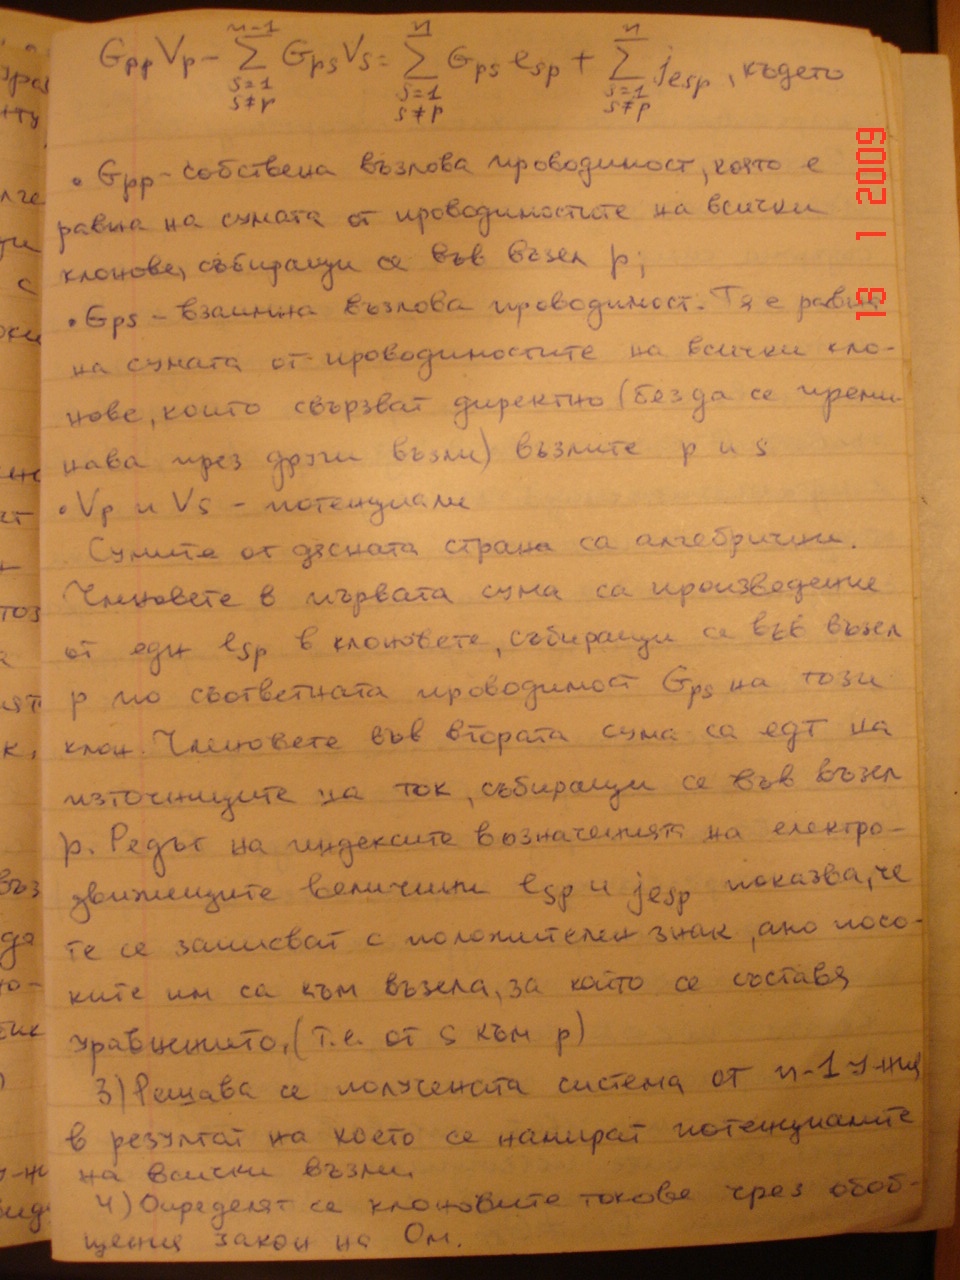 G_pp V_p - Σ_{s=1, s≠p}^{n-1} G_ps V_s = Σ_{s=1, s≠p}^{n} G_ps e_sp + Σ_{s=1, s≠p}^{n} j_esp, където
• G_pp - собствена възлова проводимост, която е
равна на сумата от проводимостите на всички
клонове, събиращи се във възел p;
• G_ps - взаимна възлова проводимост. Тя е равна
на сумата от проводимостите на всички кло-
нове, които свързват директно (без да се преми-
нава през други възли) възлите p и s
• V_p и V_s - потенциали
Сумите от дясната страна са алгебрични.
Членовете в първата сума са произведение
от едн e_sp в клоновете, събиращи се във възел
p по съответната проводимост G_ps на този
клон. Членовете във втората сума са едт на
източниците на ток, събиращи се във възел
p. Редът на индексите в означенията на електро-
движещите величини e_sp и j_esp показва, че
те се записват с положителен знак, ако посо-
ките им са към възела, за който се съставя
уравнението, (т.е. от s към p)
3) Решава се получената система от n-1 у-ния
в резултат на което се намират потенциалите
на всички възли.
4) Определят се клоновите токове чрез обоб-
щения закон на Ом.
13 1 2009